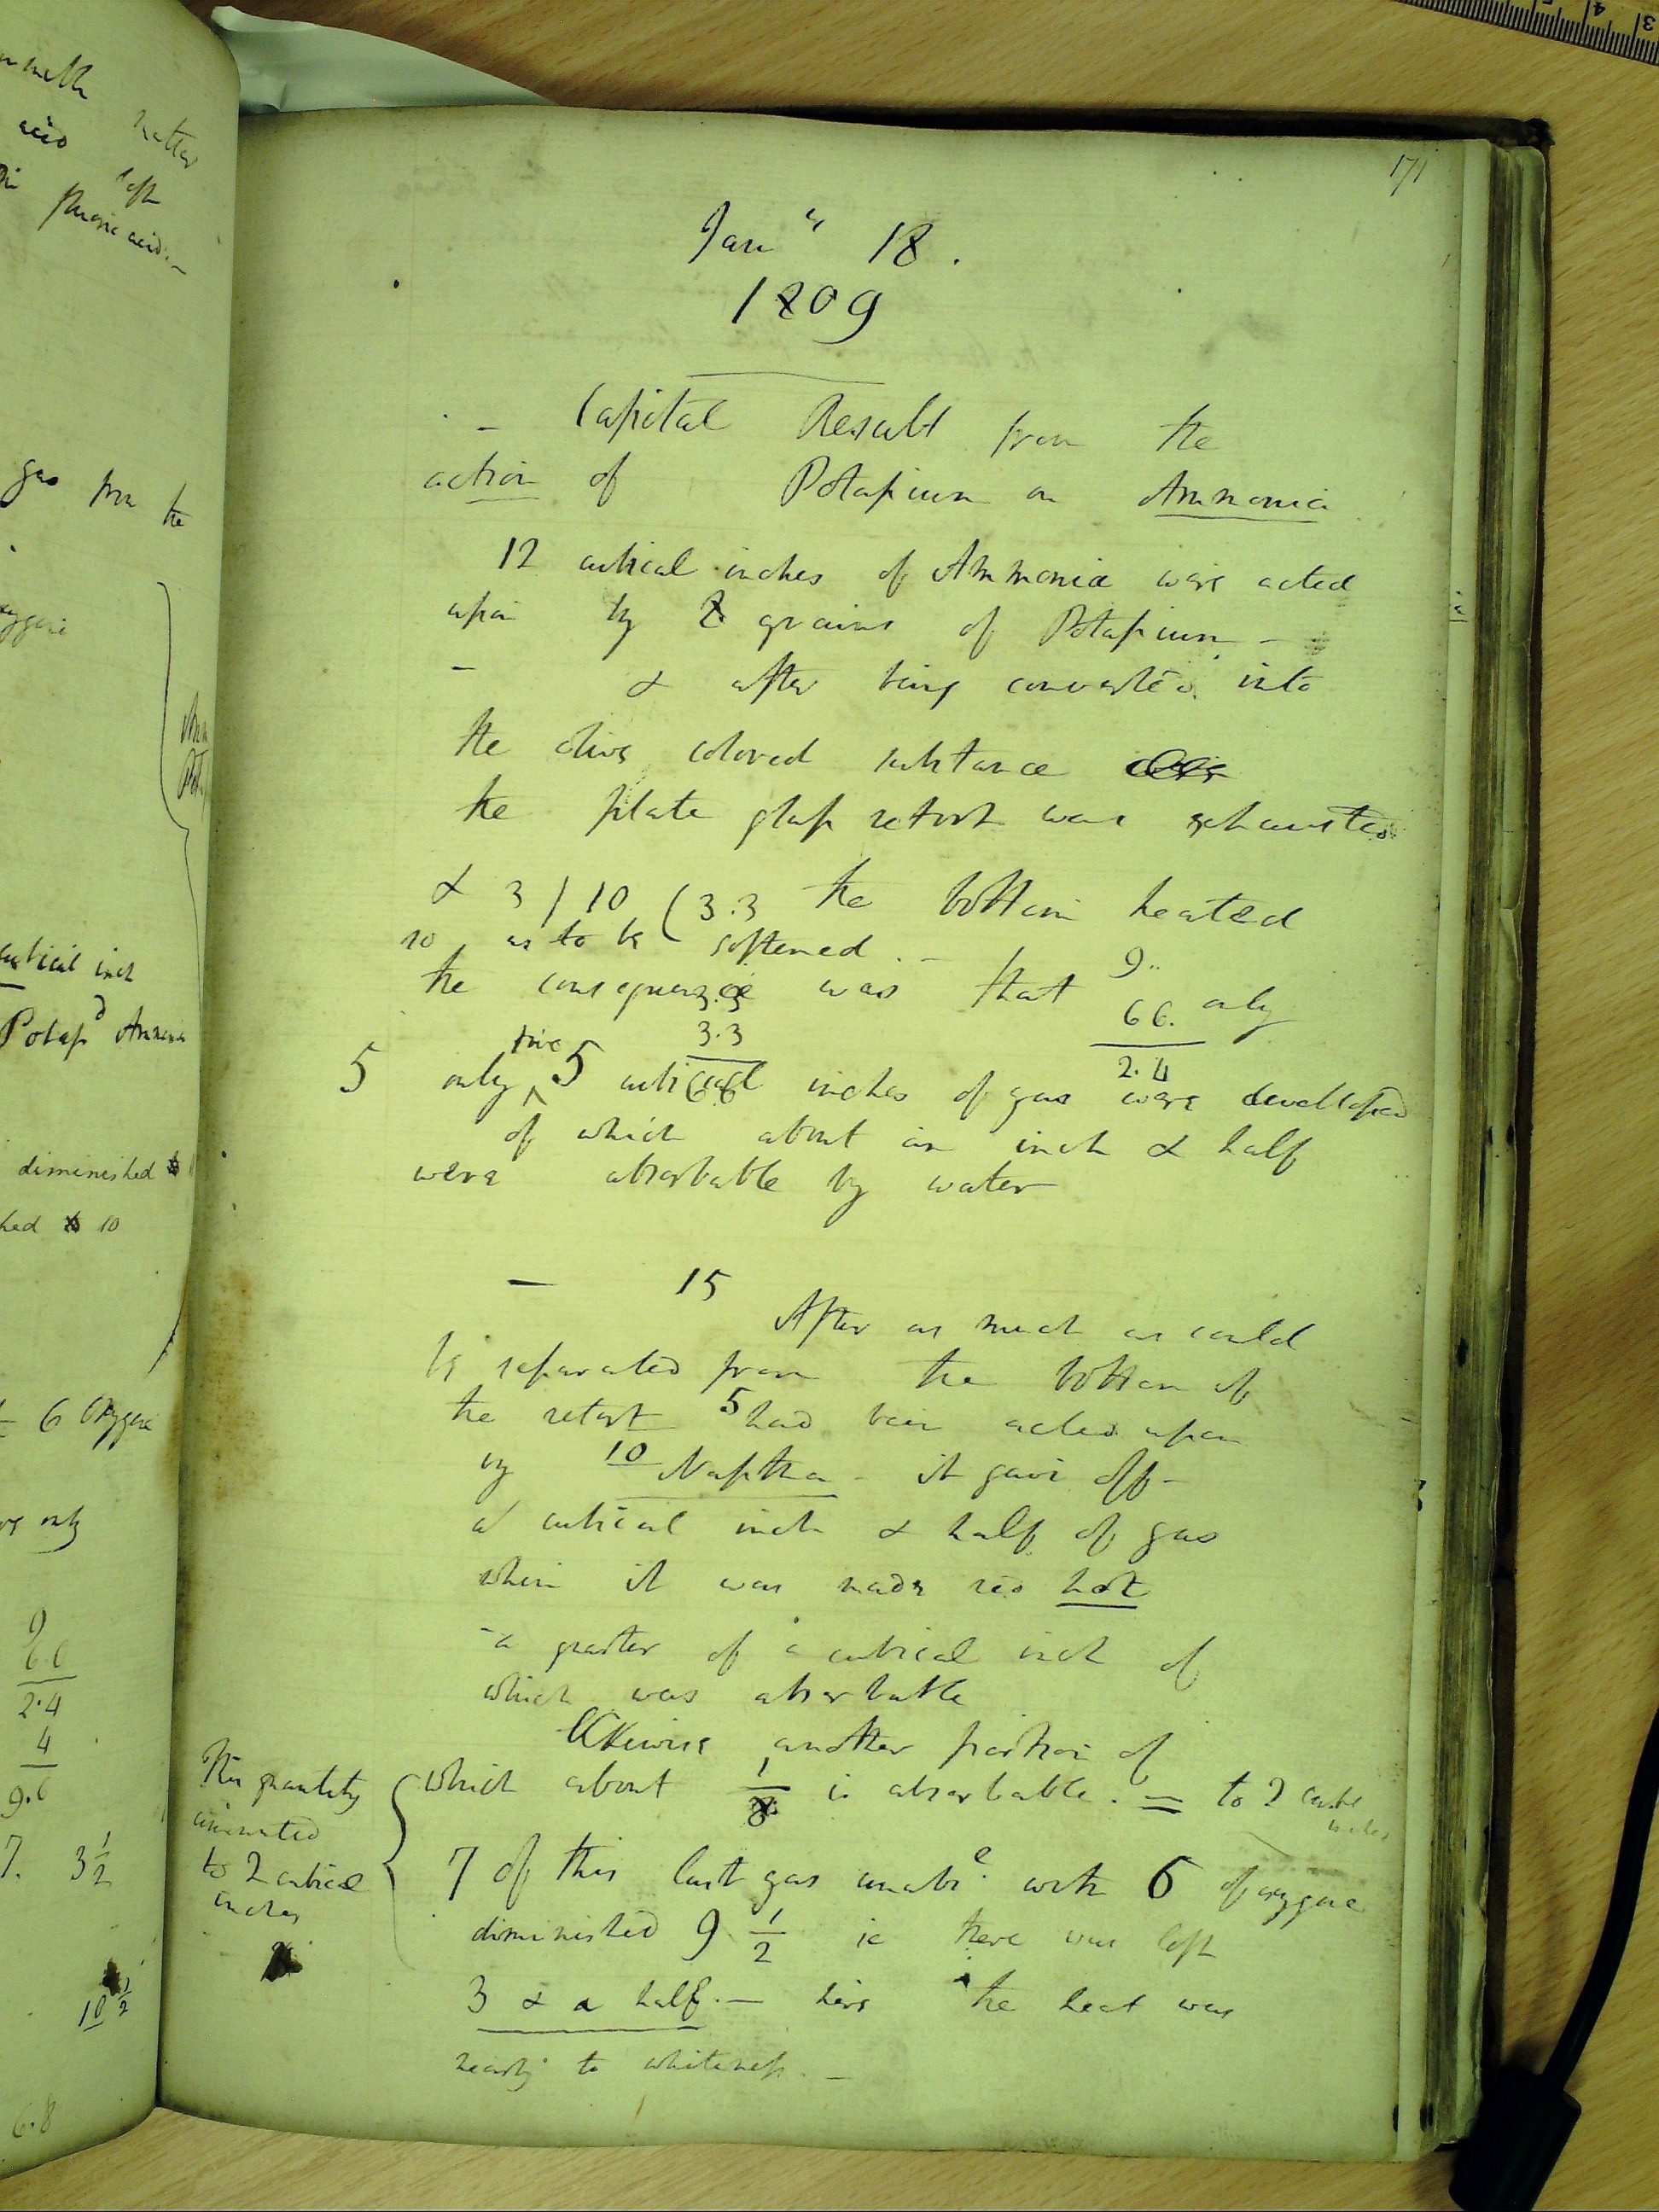 171
Jany 18.
1809
- Capital Result from the
action of Potassium on Ammonia
12 cubical inches of Ammonia were acted
upon by 8 grains of Potassium -
- & after being converted into
the olive colored substance
the plate glass retort was exhausted
& 3 ) 10 ( 3.3 the bottom heated
so as to be softened. -
the consequence was that 9.. only
3.3 66.
3.3 2.4
66
5 only five 5 cubical inches of gas were developed
of which about an inch & half
were absorbable by water
- 15
After as much as could
be separated from the bottom of
the retort 5 had been acted upon
by 10 Naptha - it gave off -
a cubical inch & half of gas
when it was made red hot
- a quarter of a cubical inch of
which was absorbable
Likewise another portion of
which about 1/8 is absorbable. = to 2 cubic
inches
This quantity
amounted
to 2 cubical
inches
7 of this last gas unabe. with 6 of oxygene
diminished 9 1/2 ie there was left
3 & a half. - here the heat was
nearly to whiteness. -
matter
acid left
fluoric acid. -
gas from the
cubical inch
Potassd Ammonia
diminished to
10
6 Oxygene
only
9
6.6
2.4
4
9.6
7. 3 1/2
6.8
3 4 5